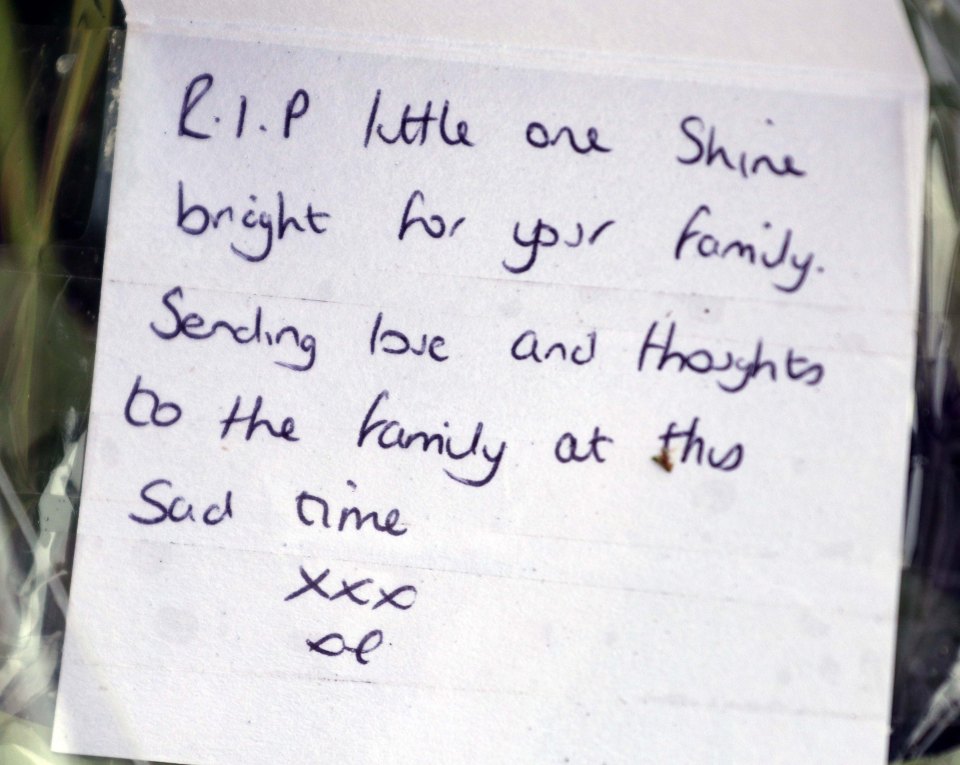 R.I.P little one Shine
bright for your family.
Sending love and thoughts
to the family at this
Sad time
xxx